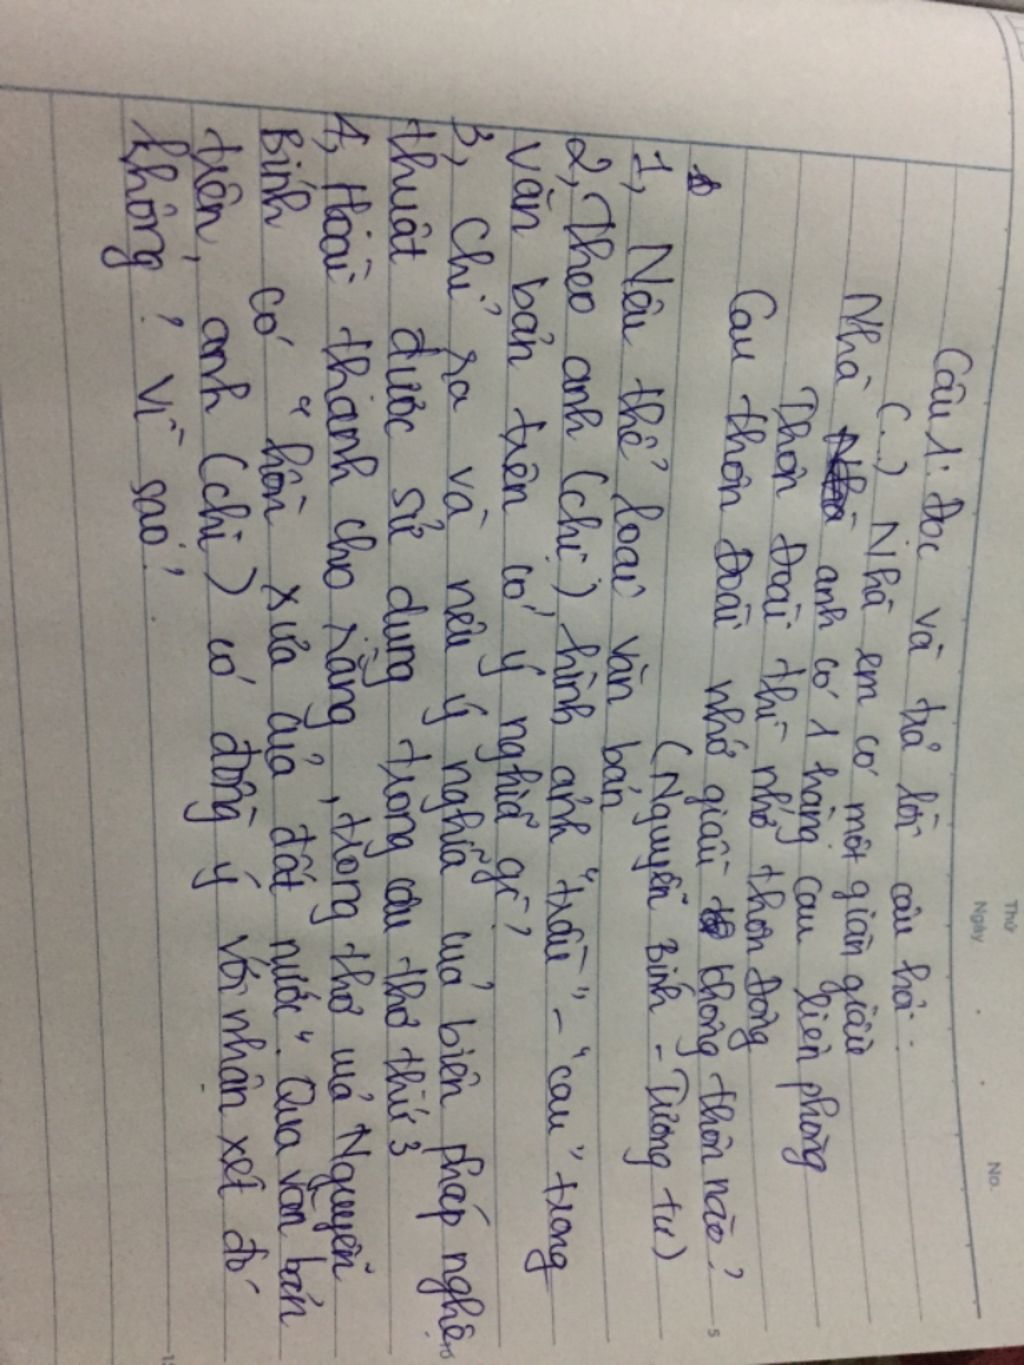 Thứ
Ngày
No.
Câu 1: Đọc và trả lời câu hỏi:
(...) Nhà em có một giàn giầu
Nhà anh có 1 hàng cau liên phòng
Thôn Đoài thì nhớ thôn Đông
Cau thôn Đoài nhớ giầu không thôn nào?
(Nguyễn Bính - Tương tư)
1, Nêu thể loại văn bản
2, Theo anh (chị) hình ảnh "trầu" - "cau" trong
văn bản trên có ý nghĩa gì?
3, Chỉ ra và nêu ý nghĩa của biện pháp nghệ
thuật được sử dụng trong câu thơ thứ 3
4, Hoài Thanh cho rằng, trong thơ của Nguyễn
Bính có "hồn xưa của đất nước". Qua văn bản
trên, anh (chị) có đồng ý với nhận xét đó
không? Vì sao?
5